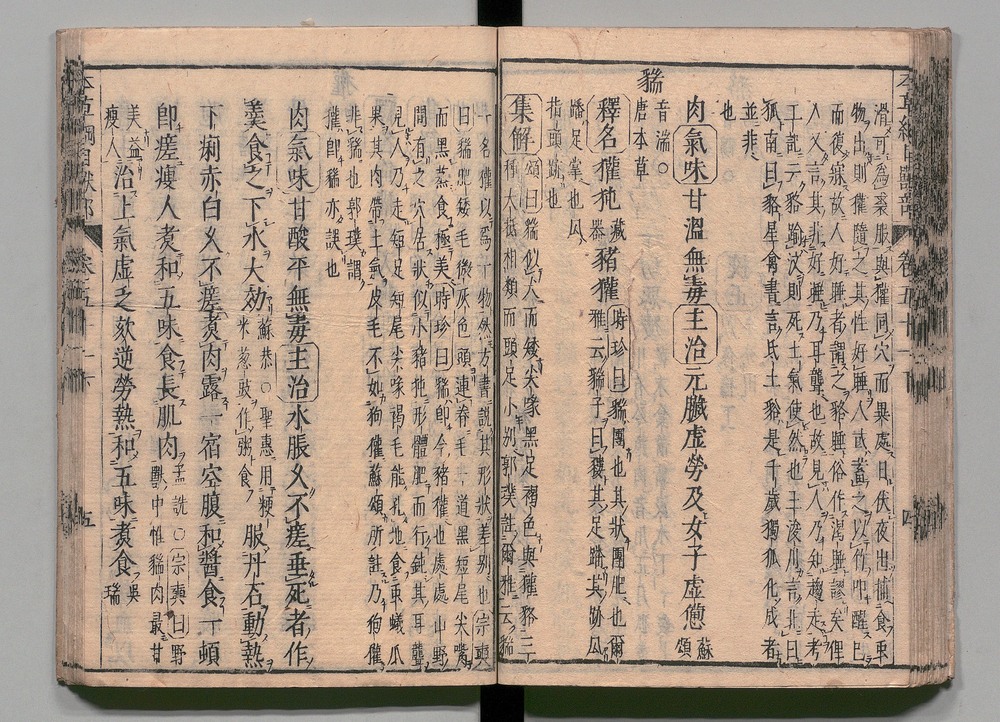 滑可爲裘服與獾同穴而異處日伏夜出捕食蟲
物出則獾隨之其性好睡人或蓄之以竹叩醒已
而復寐故人好睡者謂之貉睡俗作渴睡謬矣俚
人又言其非好睡乃耳聾也故見人乃知趨走考
工記云貉踰汶則死土氣使然也王浚川言北曰
狐南曰貉星禽書言氐土貉是千歲獨狐化成者
並非
也
肉氣味甘溫無毒主治元臟虛勞及女子虛憊蘇頌
貒
音湍○
唐本草
釋名獾㹠藏器豬獾時珍曰貒團也其狀團肥也爾
雅云貒子曰貗其足蹯其跡瓜
蹯足掌也瓜
指頭跡也
集解頌曰貒似犬而矮尖喙黑足褐色與獾貉三
種大抵相類而頭足小別郭璞註爾雅云貒
一名獾以爲一物然方書說其形狀差別也宗奭
曰貒肥矮毛微灰色頭連脊毛一道黑短尾尖嘴
而黑蒸食極美時珍曰貒即今豬獾也處處山野
間有之穴居狀似小豬㹠形體肥而行鈍其耳聾
見人乃走短足短尾尖喙褐毛能孔地食蟲蟻瓜
果其肉帶土氣皮毛不如狗獾蘇頌所註乃狗獾
非貒也郭璞謂
獾即貒亦誤也
肉氣味甘酸平無毒主治水脹久不瘥垂死者作
羹食之下水大效蘇恭○聖惠用粳米葱豉作粥食服丹石動熱
下痢赤白久不瘥煮肉露一宿空腹和醬食一頓
即瘥瘦人煮和五味食長肌肉孟詵○宗奭曰野獸中惟貒肉最甘
美益瘦人治上氣虛乏欬逆勞熱和五味煮食吳瑞